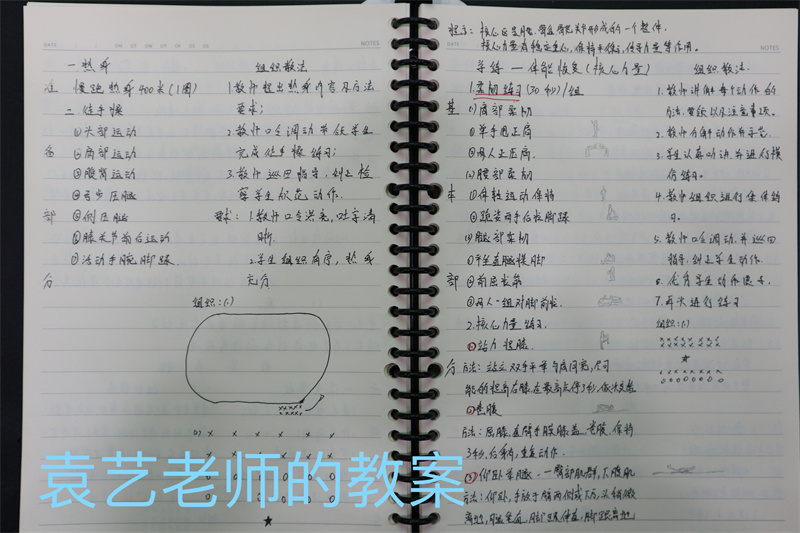 DATE
NOTES
一 热身
组织教法
准 慢跑热身400米(1圈)
1.教师提出热身内容及方法
二 徒手操
要求;
①头部运动
2.教师口令调动带领学生
备 ②肩部运动
完成徒手操练习;
③腰背运动
3.教师巡回指导,纠正检
④弓步压腿
察学生做的动作.
部 ⑤侧压腿
要求:1.教师口令洪亮,吐字清
⑥膝关节前后运动
晰.
⑦活动手腕脚踝.
2.学生组织有序,热身
分
充分
组织:(1)
(2) x x x x x x
x x x x x x
o o o o o
★
袁艺老师的教案
NOTES
核心力量有稳定重心,保持平衡,传导力量等作用。
导练 — 体能恢复(核心力量)
组织教法.
1.柔韧练习(30秒)/组
1.教师讲解每个动作的
基 (1)肩部柔韧
方法,要领以及注意事项.
①单手围正肩
2.教师分解动作与示范.
②两人正压肩.
3.学生认真听讲,并进行模
(2)腰部柔韧
仿练习.
本 ①体转运动保持
4.教师组织进行集体练
②跪姿两手后拉脚踝
习.
(4)腿部柔韧
5.教师口令调动,并巡回
①坐位直腿摸脚
指导,纠正学生动作.
部 ②前屈长条
6.优秀学生动作展示.
③两人一组对脚前拉.
7.再次进行练习
2.核心力量练习.
组织:(1)
①站力提膝.
★
分 方法:站立双手平举与肩同宽,尽可
能的提高右膝,在最高点停了秒,依次交替
②卷腹
方法:屈膝,直臂手摸膝盖,卷腹,保持
3秒,后常有,重复动作.
③仰卧举腿 - 一臀部肌群,大腿肌
方法:仰卧,手放于腹两侧或下方,头稍微